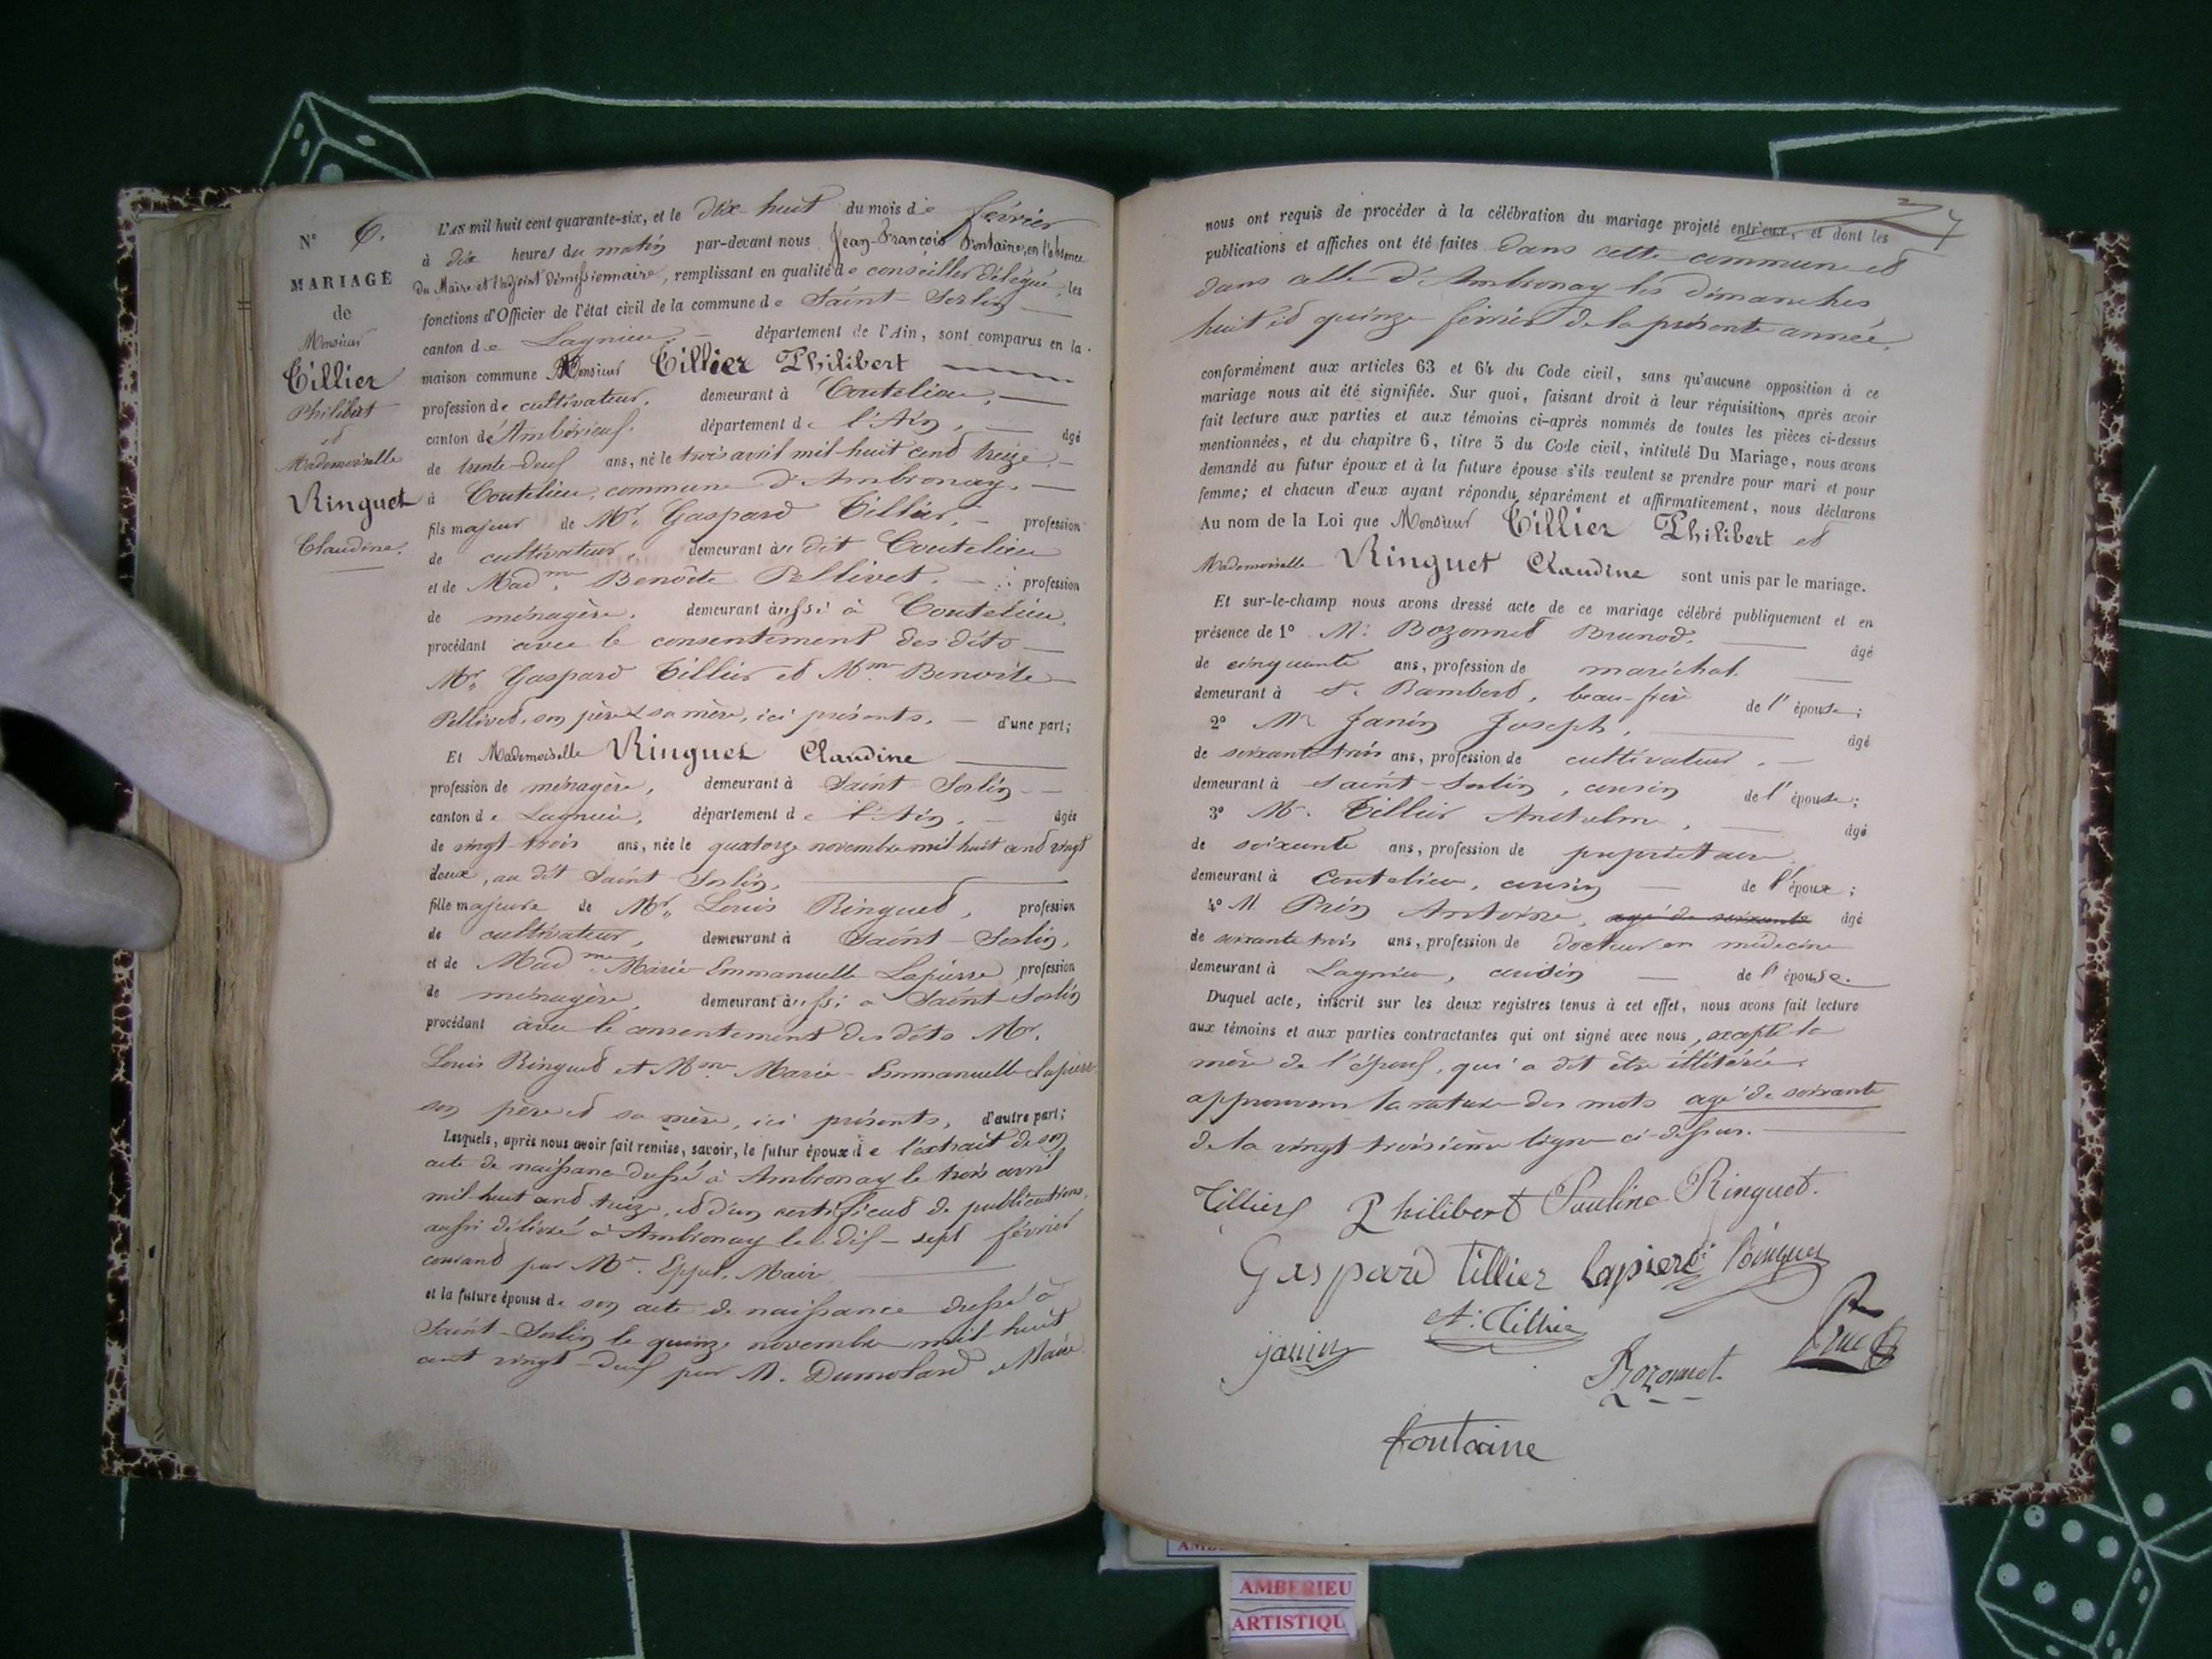 N° 6.
MARIAGE
de
Monsieur
Tillier
Philibert
et
Mademoiselle
Ringuet
Claudine.
L'AN mil huit cent quarante-six, et le dix-huit du mois de février
à dix heures du matin par-devant nous Jean-François Fontaine, en l'absence
du Maire et l'adjoint démissionnaire, remplissant en qualité de conseiller délégué, les
fonctions d'Officier de l'état civil de la commune de Saint-Sorlin
canton de Lagnieu, département de l'Ain, sont comparus en la
maison commune Monsieur Tillier Philibert
profession de cultivateur, demeurant à Coutelieu,
canton d'Ambérieux. département de l'Ain, âgé
de trente-deux ans, né le trois avril mil-huit cent treize,
à Coutelieu, commune d'Ambronay.
fils majeur de Mr. Gaspard Tillier, profession
de cultivateur, demeurant au dit Coutelieu
et de Madme. Benoîte Pellivet. profession
de ménagère, demeurant aussi à Coutelieu,
procédant avec le consentement des dits
Mr. Gaspard Tillier et Mme. Benoite
Pellivet, son père & sa mère, ici présents. d'une part;
Et Mademoiselle Ringuet Claudine
profession de ménagère, demeurant à Saint-Sorlin
canton de Lagnieu, département de l'Ain, âgée
de vingt-trois ans, née le quatorze novembre mil huit cent vingt
deux, au dit Saint Sorlin,
fille majeure de Mr. Louis Ringuet, profession
de cultivateur, demeurant à Saint-Sorlin,
et de Madme. Marie-Emmanuelle Lapierre profession
de ménagère, demeurant aussi à Saint-Sorlin
procédant avec le consentement des dits Mr.
Louis Ringuet et Mme. Marie-Emmanuelle Lapierre
son père et sa mère, ici présents, d'autre part;
Lesquels, après nous avoir fait remise, savoir, le futur époux de l'extrait de son
acte de naissance dressé à Ambronay le trois avril
mil-huit cent treize, et d'un certificat de publications,
aussi délivré à Ambronay le dix-sept février
courant par Mr. Maire
et la future épouse de son acte de naissance dressé à
Saint-Sorlin le quinze novembre mil huit
cent vingt-deux par M. Dumolard Maire
7
nous ont requis de procéder à la célébration du mariage projeté entr'eux, et dont les
publications et affiches ont été faites dans cette commune et
dans celle d'Ambronay les dimanches
huit et quinze février de la présente année,
conformément aux articles 63 et 64 du Code civil, sans qu'aucune opposition à ce
mariage nous ait été signifiée. Sur quoi, faisant droit à leur réquisition, après avoir
fait lecture aux parties et aux témoins ci-après nommés de toutes les pièces ci-dessus
mentionnées, et du chapitre 6, titre 5 du Code civil, intitulé Du Mariage, nous avons
demandé au futur époux et à la future épouse s'ils veulent se prendre pour mari et pour
femme; et chacun d'eux ayant répondu séparément et affirmativement, nous déclarons
Au nom de la Loi que Monsieur Tillier Philibert et
Mademoiselle Ringuet Claudine sont unis par le mariage.
Et sur-le-champ nous avons dressé acte de ce mariage célébré publiquement et en
présence de 1° M. Bozonnet Brunod. âgé
de cinquante ans, profession de maréchal
demeurant à St. Rambert, beau-frère de l'épouse;
2° Mr Janin Joseph, âgé
de soixante trois ans, profession de cultivateur,
demeurant à Saint-Sorlin, cousin de l'épouse;
3° Mr. Tillier Anthelme, âgé
de soixante ans, profession de propriétaire
demeurant à Coutelieu, cousin de l'époux;
4° M. Antoine, agé de soixante âgé
de soixante trois ans, profession de docteur en médecine
demeurant à Lagnieu, cousin de l'épouse.
Duquel acte, inscrit sur les deux registres tenus à cet effet, nous avons fait lecture
aux témoins et aux parties contractantes qui ont signé avec nous, excepté la
mère de l'époux, qui a dit être illitérée.
approuvons la rature des mots agé de soixante
de la vingt-troisième ligne ci-dessus.
Tillier Philibert Pauline Ringuet.
Gaspard Tillier Lapierre Ringuet
A. Tillier
janin
Bozonnet
fontaine
AMBERIEU
ARTISTIQU